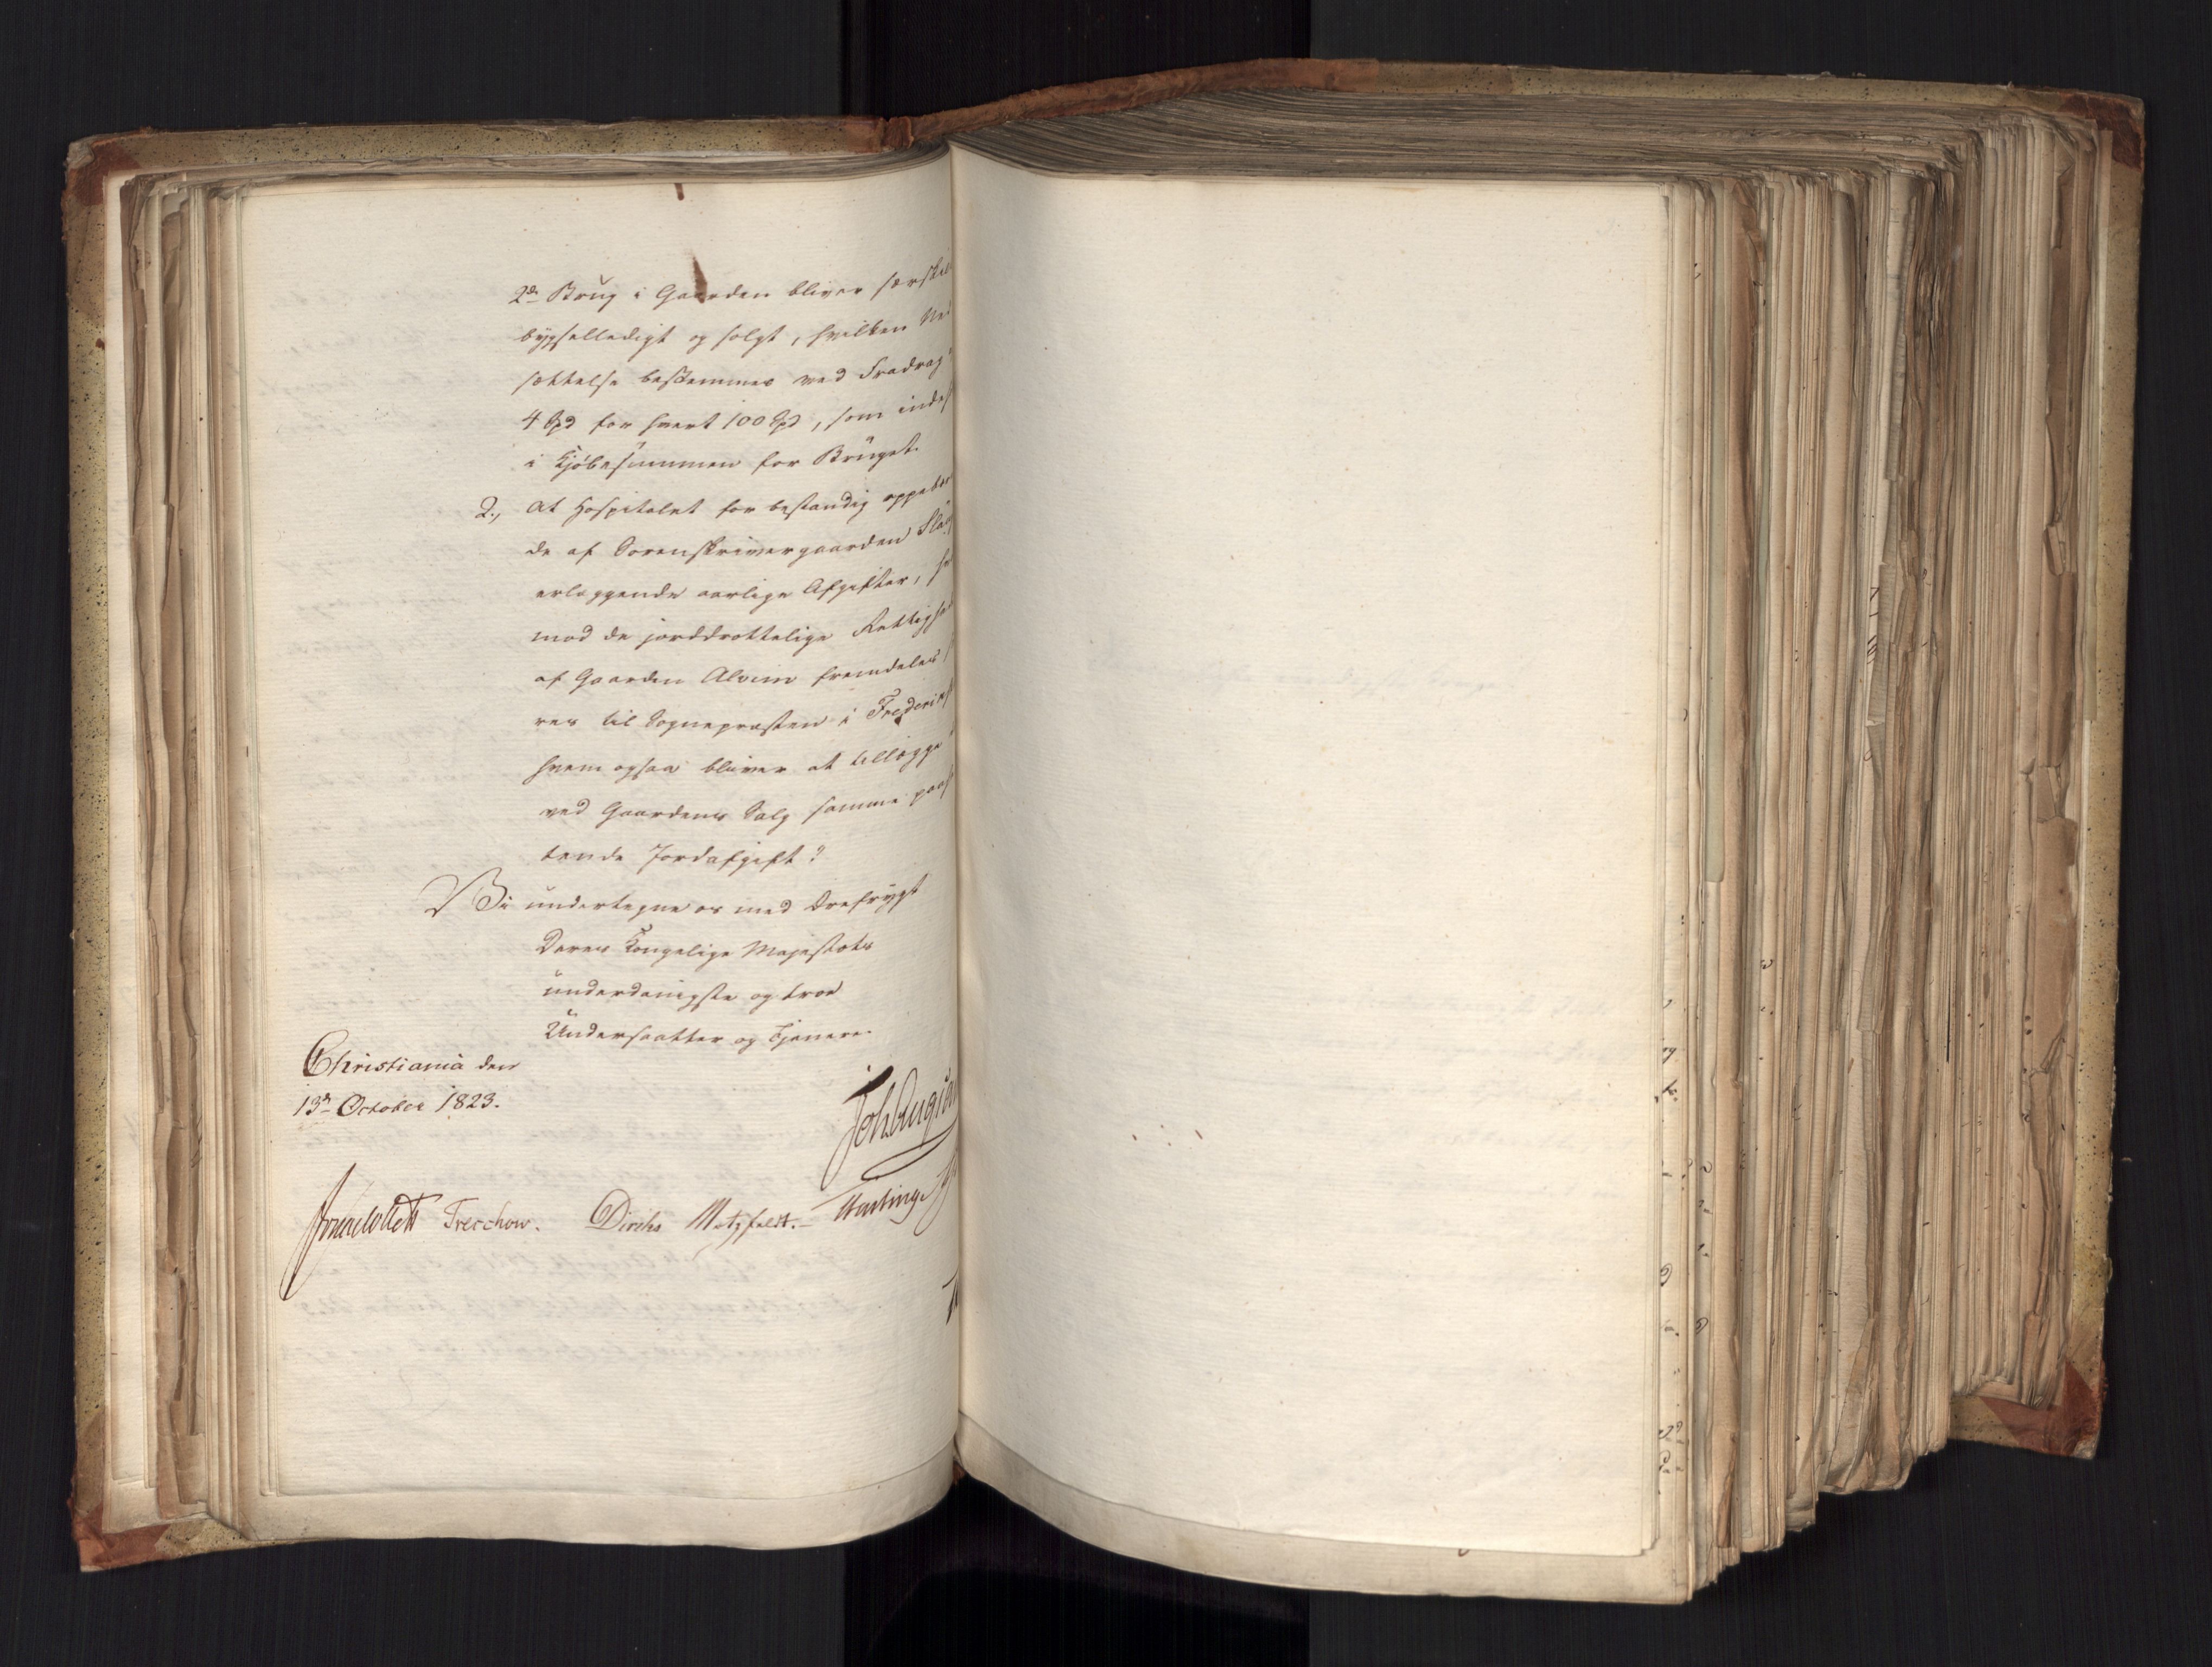 2de Brug i Gaarden bliver særskil
bygselledigt og solgt, hvilken Ned
sættelse bestemmes ved Fradrag
4 Spd for hvert 100 Spd, som indes
i Kjöbesummen for Bruget.
2., at Hospitalet for bestandig oppebær
de af Sorenskrivergaarden
erlæggende aarlige Afgifter,
mod de jorddrottelige Rettighe
af Gaarden Alvim fremdeles
res til Sognepræsten i Frederiks
hvem ogsaa bliver at tillægge
ved Gaardens Salg samme paah
tende Jordafgift?
Vi undertegne os med Ærefrygt
Deres Kongelige Majestæts
underdanigste og troe
Undersaatter og Tjenere.
Christiania den
13de October 1823.
Joh. Aug: San
Sommerhielm Treschow. Diriks Motzfeldt.